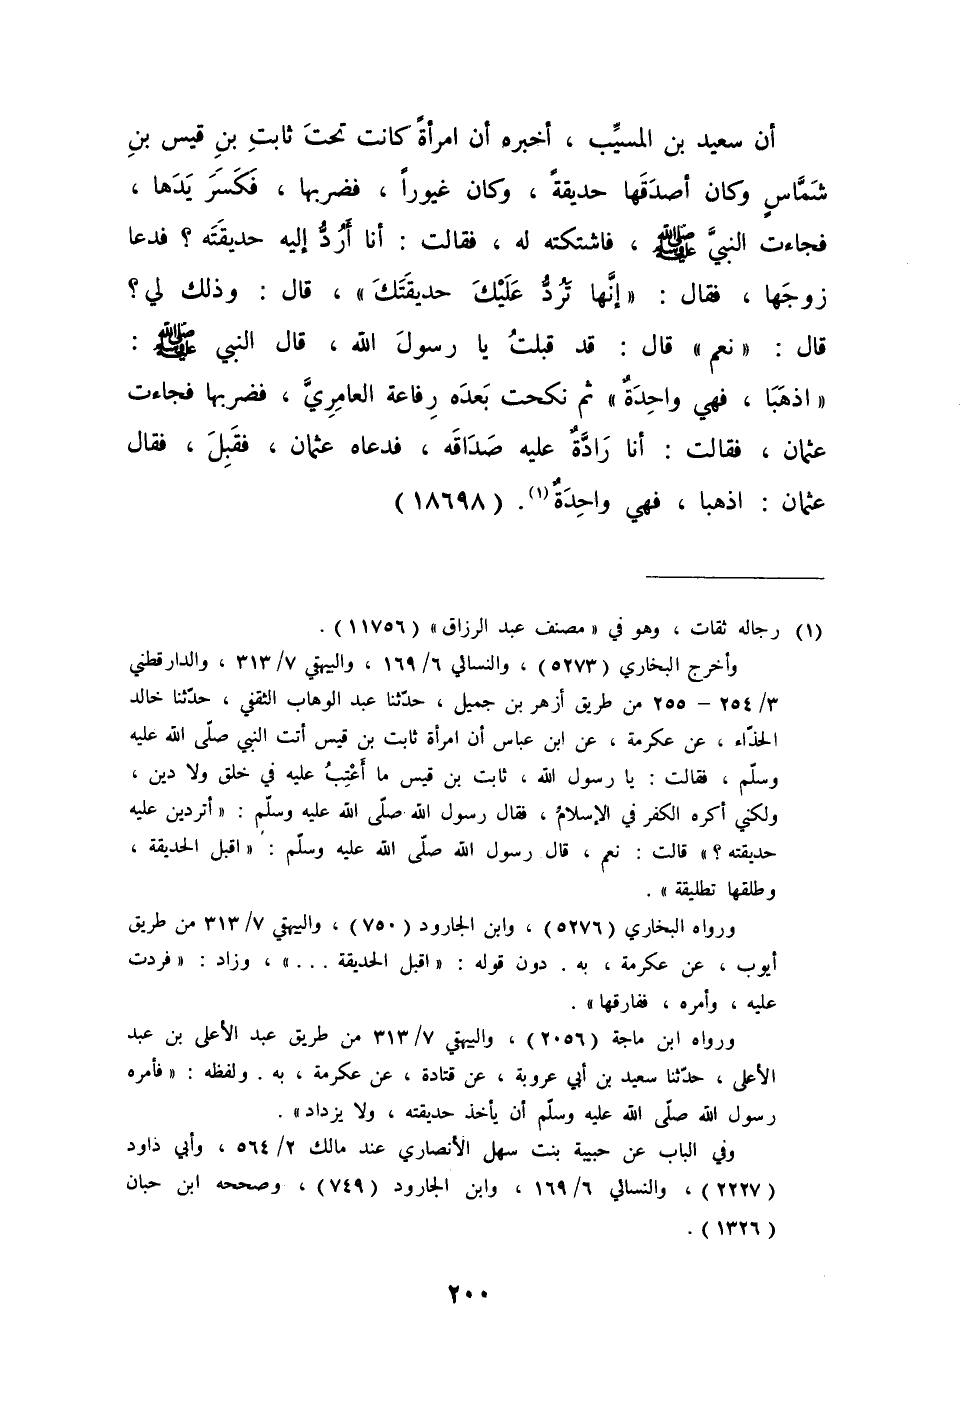 أن سعيد بن المسيِّب ، أخبره أن امرأةً كانت تحتَ ثابتِ بنِ قيس بنِ
شمَّاسٍ وكان أصدَقَها حديقةً ، وكان غيوراً ، فضربها ، فَكَسَرَ يَدَها ،
فجاءت النبيَّ ﷺ ، فاشتكته له ، فقالت : أنا أَرُدُّ إليه حديقتَه ؟ فدعا
زوجَها ، فقال : « إنَّها تَرُدُّ عَلَيْكَ حديقتَكَ » ، قال : وذلك لي؟
قال : « نعم » قال : قد قبلتُ يا رسولَ الله ، قال النبي ﷺ :
« اذهَبَا ، فهي واحِدَةٌ » ثم نكحت بَعدَه رِفاعة العامِرِيَّ ، فضربها فجاءت
عثمان ، فقالت : أنا رَادَّةٌ عليه صَدَاقَه ، فدعاه عثمان ، فقَبِلَ ، فقال
عثمان : اذهبا ، فهي واحِدَةٌ(١). (١٨٦٩٨)
(١) رجاله ثقات ، وهو في « مصنف عبد الرزاق » (١١٧٥٦) .
وأخرج البخاري (٥٢٧٣) ، والنسائي ٦/١٦٩ ، والبيهقي ٧/٣١٣ ، والدارقطني
٣/٢٥٤ – ٢٥٥ من طريق أزهر بن جميل ، حدّثنا عبد الوهاب الثقفي ، حدّثنا خالد
الحذّاء ، عن عكرمة ، عن ابن عباس أن امرأة ثابت بن قيس أتت النبي صلّى الله عليه
وسلّم ، فقالت : يا رسول الله ، ثابت بن قيس ما أَعْتِبُ عليه في خلق ولا دين ،
ولكني أكره الكفر في الإسلام ، فقال رسول الله صلّى الله عليه وسلّم : « أتردين عليه
حديقته ؟ » قالت : نعم ، قال رسول الله صلّى الله عليه وسلّم : « اقبل الحديقة ،
وطلقها تطليقة » .
ورواه البخاري (٥٢٧٦) ، وابن الجارود (٧٥٠) ، والبيهقي ٧/٣١٣ من طريق
أيوب ، عن عكرمة ، به . دون قوله : « اقبل الحديقة ... » ، وزاد : « فردت
عليه ، وأمره ، ففارقها » .
ورواه ابن ماجة (٢٠٥٦) ، والبيهقي ٧/٣١٣ من طريق عبد الأعلى بن عبد
الأعلى ، حدّثنا سعيد بن أبي عروبة ، عن قتادة ، عن عكرمة ، به . ولفظه : « فأمره
رسول الله صلّى الله عليه وسلّم أن يأخذ حديقته ، ولا يزداد » .
وفي الباب عن حبيبة بنت سهل الأنصاري عند مالك ٢/٥٦٤ ، وأبي داود
(٢٢٢٧) ، والنسائي ٦/١٦٩ ، وابن الجارود (٧٤٩) ، وصححه ابن حبان
(١٣٢٦) .
٢٠٠